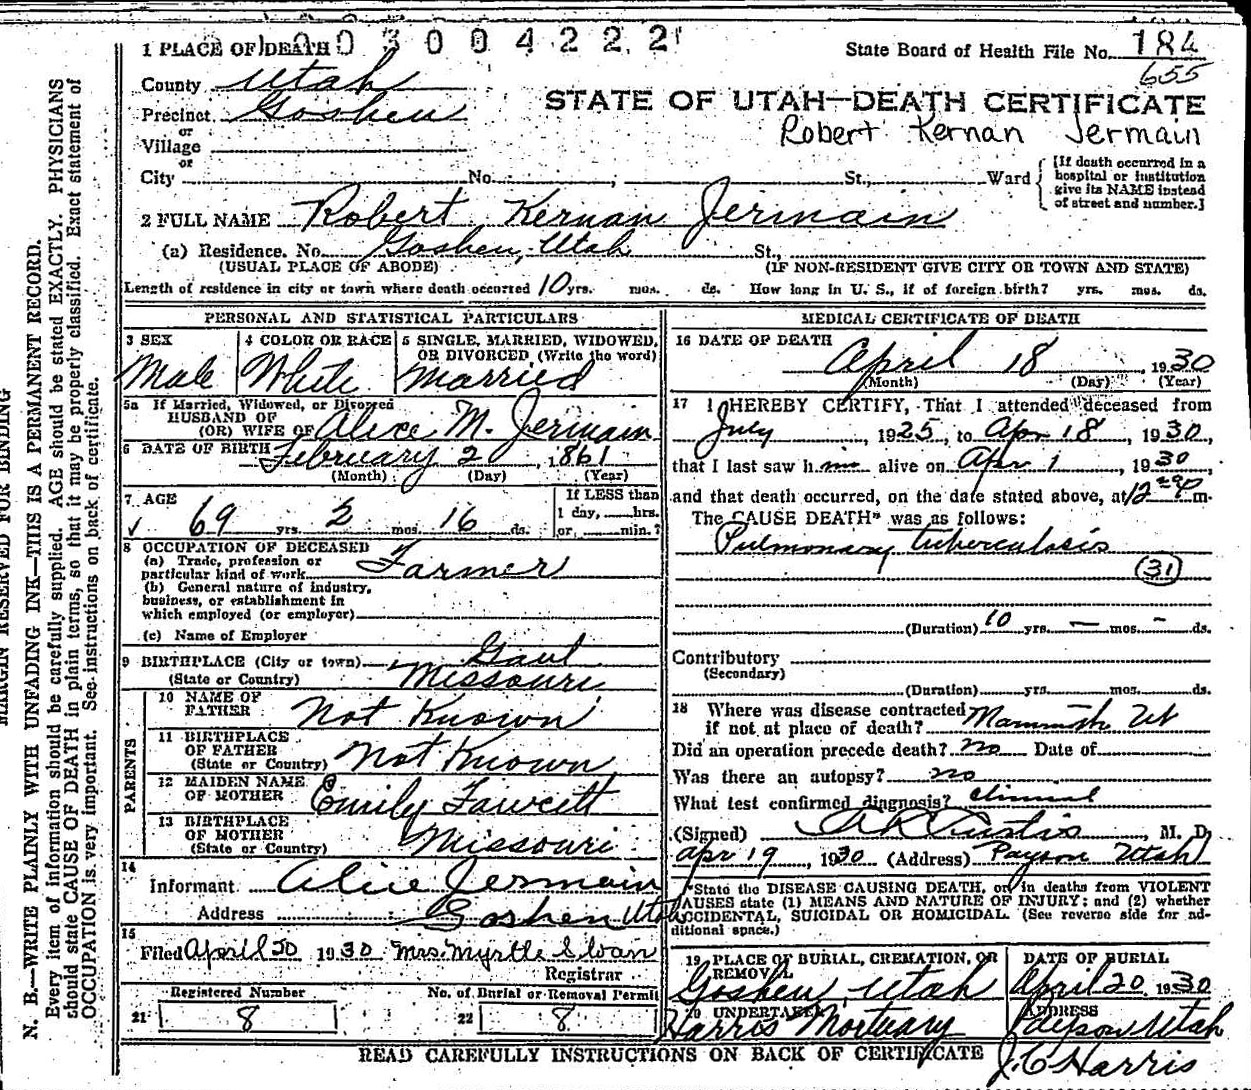 1 PLACE OF DEATH 003004222
State Board of Health File No. 184
655
County Utah
STATE OF UTAH—DEATH CERTIFICATE
Precinct Goshen
Robert Kernan Jermain
or
Village
or
City No. , St., Ward
[If death occurred in a
hospital or institution
give its NAME instead
of street and number.]
2 FULL NAME Robert Kernan Jermain
(a) Residence. No. Goshen, Utah St.,
(USUAL PLACE OF ABODE) (IF NON-RESIDENT GIVE CITY OR TOWN AND STATE)
Length of residence in city or town where death occurred 10 yrs. mos. ds. How long in U. S., if of foreign birth? yrs. mos. ds.
PERSONAL AND STATISTICAL PARTICULARS
3 SEX
Male
4 COLOR OR RACE
White
5 SINGLE, MARRIED, WIDOWED,
OR DIVORCED, (Write the word)
Married
5a If Married, Widowed, or Divorced
HUSBAND OF
(OR) WIFE OF Alice M. Jermain
6 DATE OF BIRTH February 2, 1861
(Month) (Day) (Year)
7 AGE
69 yrs. 2 mos. 16 ds.
If LESS than
1 day, hrs.
or min.?
8 OCCUPATION OF DECEASED
(a) Trade, profession or
particular kind of work Farmer
(b) General nature of industry,
business, or establishment in
which employed (or employer)
(c) Name of Employer
9 BIRTHPLACE (City or town) Gaul
(State or Country) Missouri
PARENTS
10 NAME OF
FATHER Not Known
11 BIRTHPLACE
OF FATHER
(State or Country) Not Known
12 MAIDEN NAME
OF MOTHER Emily Fawcett
13 BIRTHPLACE
OF MOTHER
(State or Country) Missouri
14
Informant Alice Jermain
Address Goshen Utah
15
Filed April 20 1930 Mrs. Myrtle Sloan
Registrar
Registered Number
21 8
No. of Burial or Removal Permit
22 8
MEDICAL CERTIFICATE OF DEATH
16 DATE OF DEATH
April 18, 1930
(Month) (Day) (Year)
17 I HEREBY CERTIFY, That I attended deceased from
July, 1925, to Apr 18, 1930,
that I last saw him alive on Apr 1, 1930,
and that death occurred, on the date stated above, at m.
The CAUSE DEATH* was as follows:
Pulmonary tuberculosis
31
(Duration) 10 yrs. — mos. - ds.
Contributory
(Secondary)
(Duration) yrs. mos. ds.
18 Where was disease contracted
if not at place of death? Mammoth Ut
Did an operation precede death? no Date of
Was there an autopsy? no
What test confirmed diagnosis? clinical
(Signed) , M. D.
Apr 19, 1930 (Address) Payson Utah
*State the DISEASE CAUSING DEATH, or, in deaths from VIOLENT
CAUSES state (1) MEANS AND NATURE OF INJURY; and (2) whether
ACCIDENTAL, SUICIDAL OR HOMICIDAL. (See reverse side for ad-
ditional space.)
19 PLACE OF BURIAL, CREMATION, OR
REMOVAL
Goshen, Utah
DATE OF BURIAL
April 20 1930
20 UNDERTAKER
Harris Mortuary
ADDRESS
Payson Utah
J. C. Harris
READ CAREFULLY INSTRUCTIONS ON BACK OF CERTIFICATE
MARGIN RESERVED FOR BINDING
N. B.—WRITE PLAINLY WITH UNFADING INK—THIS IS A PERMANENT RECORD.
Every item of information should be carefully supplied. AGE should be stated EXACTLY. PHYSICIANS
should state CAUSE OF DEATH in plain terms, so that it may be properly classified. Exact statement of
OCCUPATION is very important. See instructions on back of certificate.